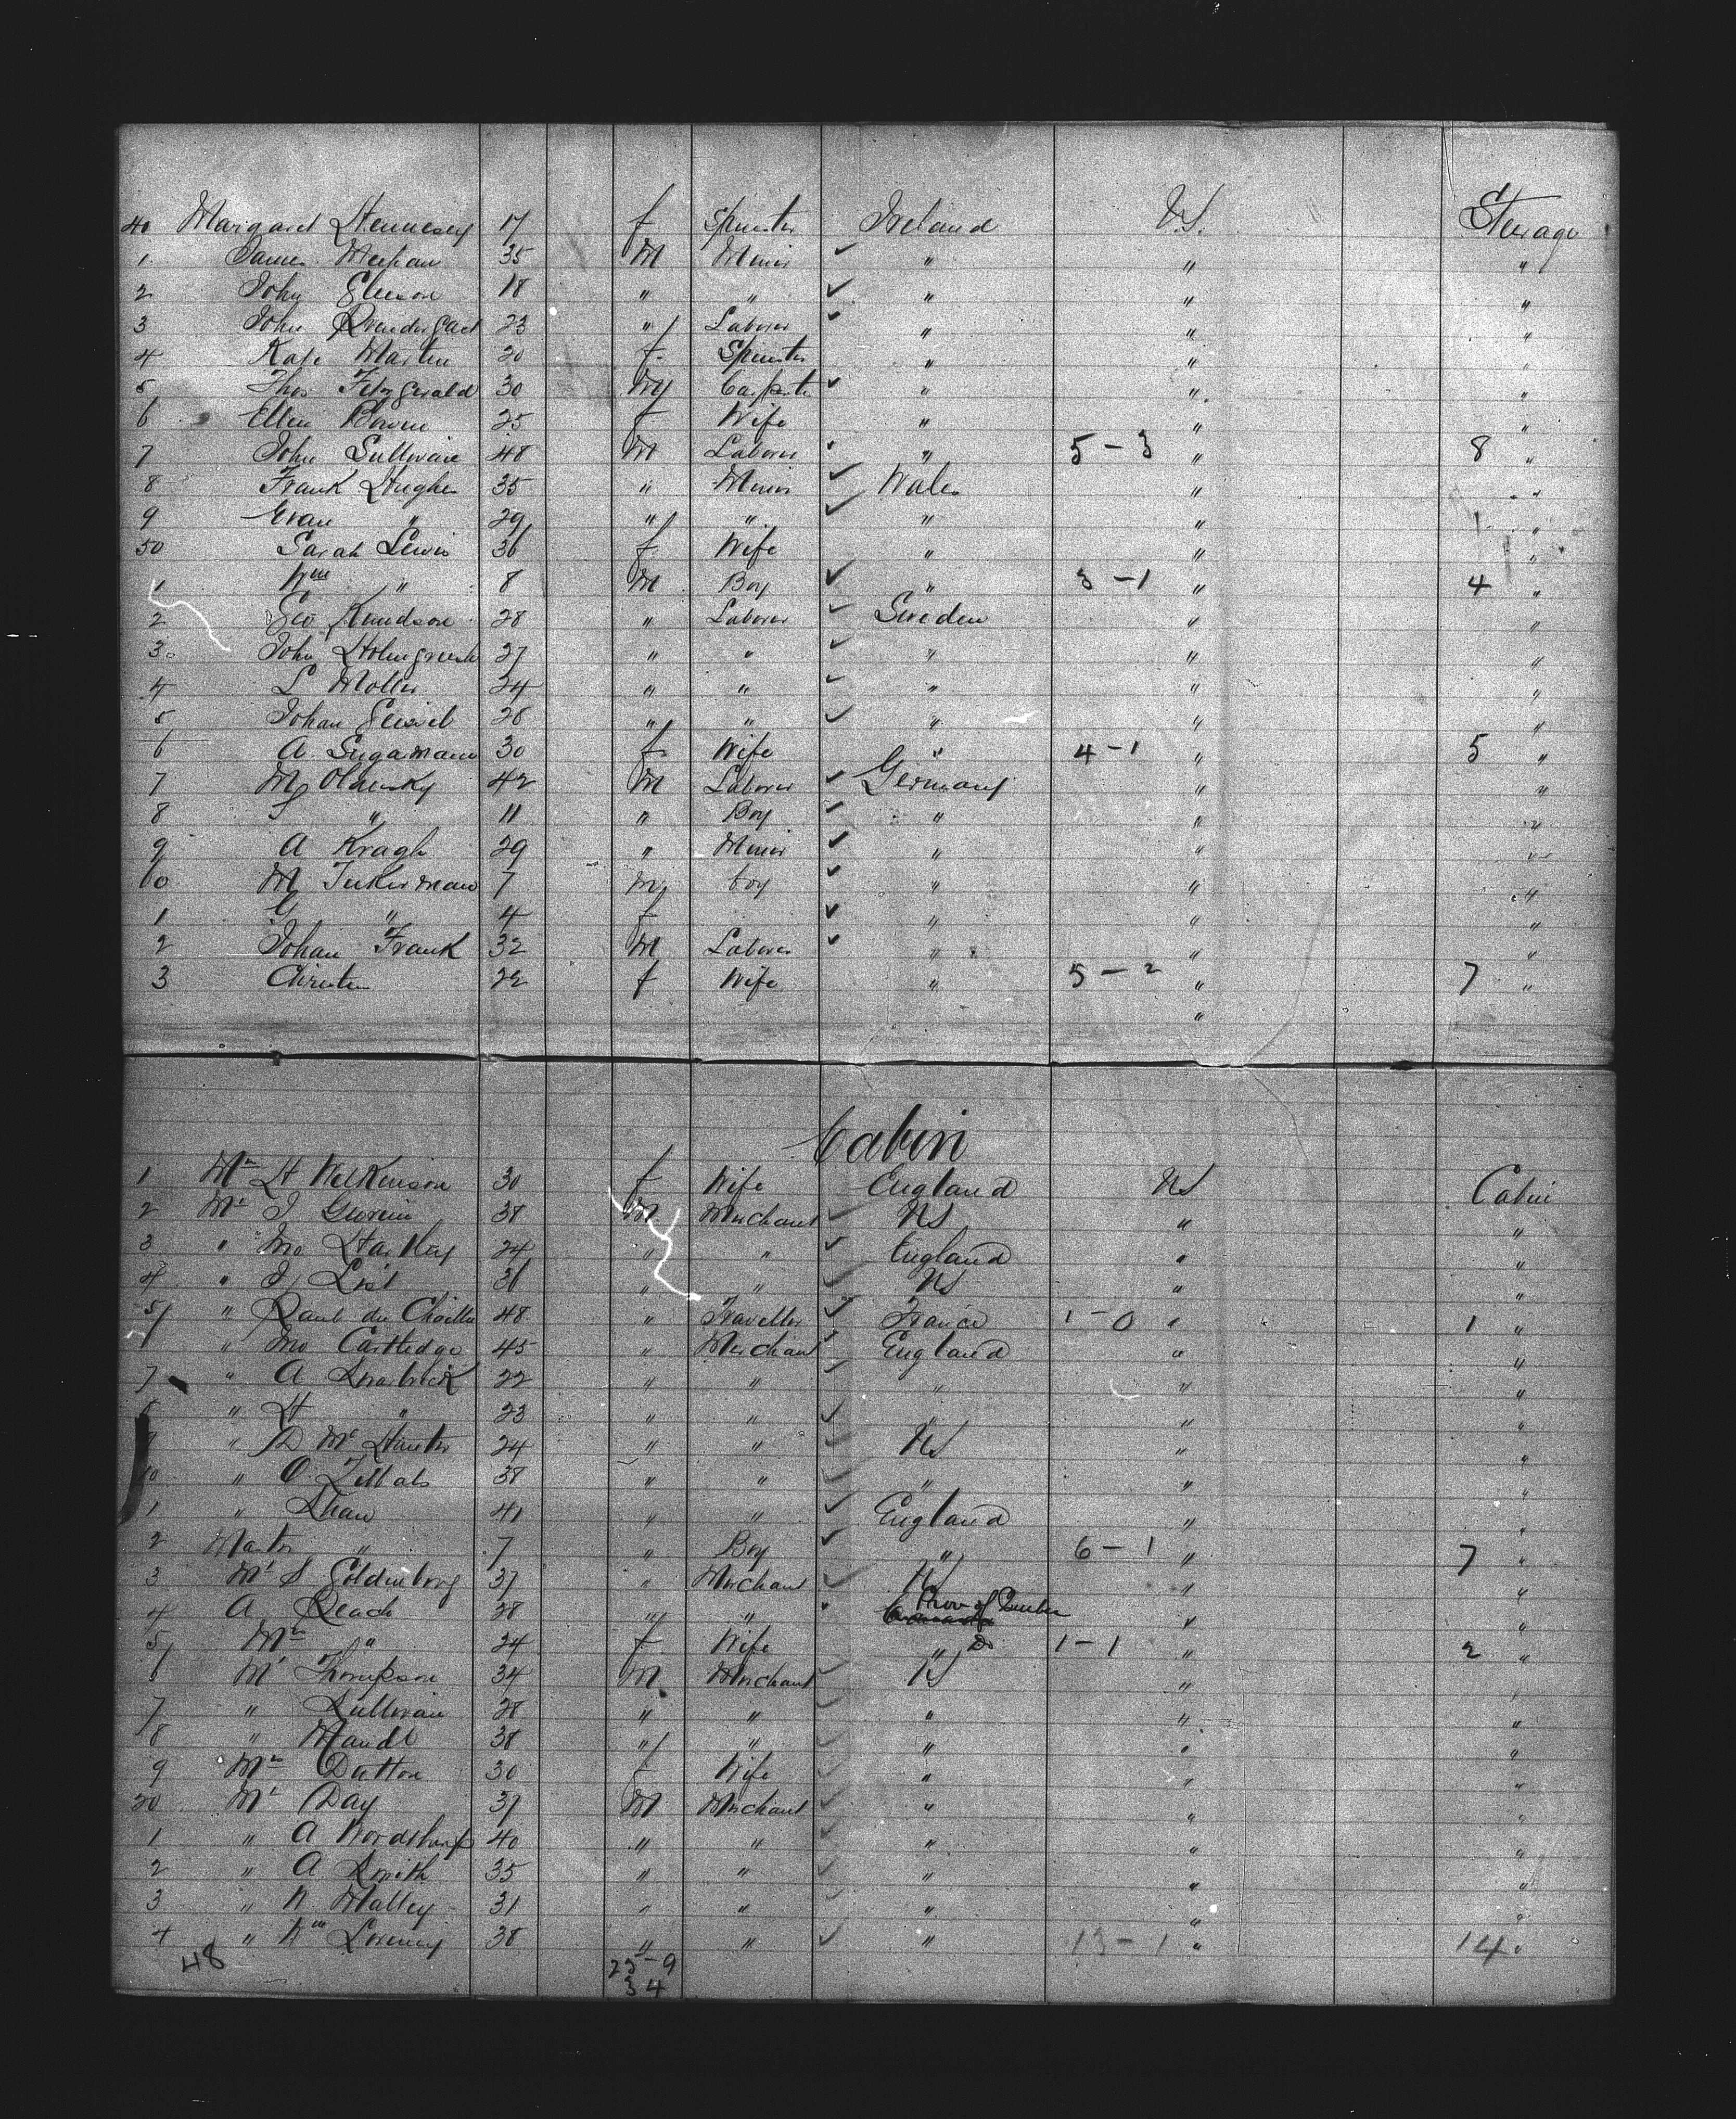 40 Margaret Hennesey 17 f Spinster Ireland U.S. Steerage
1 James Meehan 35 M Miner " " "
2 John Gleeson 18 " " " " "
3 John Prendergast 23 " Laborer " " "
4 Kate Martin 20 f Spinster " " "
5 Thos Fitzgerald 30 M Carpentr " " "
6 Ellen Bowne 25 f Wife " " "
7 John Sullivan 48 M Laborer " 5-3 " 8 "
8 Frank Hughes 35 " Miner Wales " "
9 Evan " 29 " " " " "
50 Sarah Lewis 36 f Wife " " "
1 Wm " 8 M Boy " 3-1 " 4 "
2 Geo Knudson 28 " Laborer Sweden " "
3 John 27 " " " " "
4 L Moller 24 " " " " "
5 Johan 26 " " " " "
6 A. Sugamann 30 f Wife " 4-1 " 5 "
7 M Olansky 42 M Laborer Germany " "
8 S " 11 " Boy " " "
9 A Kragh 29 " Miner " " "
60 M Tuckerman 7 M boy " " "
1 G " 4 f " " "
2 Johan Frank 32 M Laborer " " "
3 22 f Wife " 5-2 " 7 "
"
Cabin
1 Mrs H Wilkinson 30 f Wife England US Cabin
2 Mr J 38 M Merchant US " "
3 " Jno Starkey 24 " " England " "
4 " J List 36 " " US " "
5 " Paul du Chaillu 48 " Traveller France 1-0 " 1 "
" Jno Cartledge 45 " Merchant England " "
7 " A 22 " " " " "
" H " 23 " " " " "
9 " D Mc Hunter 24 " " US " "
10 " O 38 " " " " "
1 " Shaw 41 " " England " "
2 Master " 7 " Boy " 6-1 " 7 "
3 Mr S Goldenberg 37 " Merchant US " "
4 A Peach 28 " " Prov of Quebec " "
5 Mrs " 24 f Wife " Do 1-1 " 2 "
6 Mr Thompson 34 M Merchant US " "
7 " Sullivan 28 " " " " "
8 " Mandl 38 " " " " "
9 Mrs Dutton 30 f Wife " " "
20 Mr Day 37 M Merchant " " "
1 " A 40 " " " " "
2 " A Smith 35 " " " " "
3 " W. Malley 31 " " " " "
4 " Wm 38 " " " 13-1 " 14 "
48 25-9
34